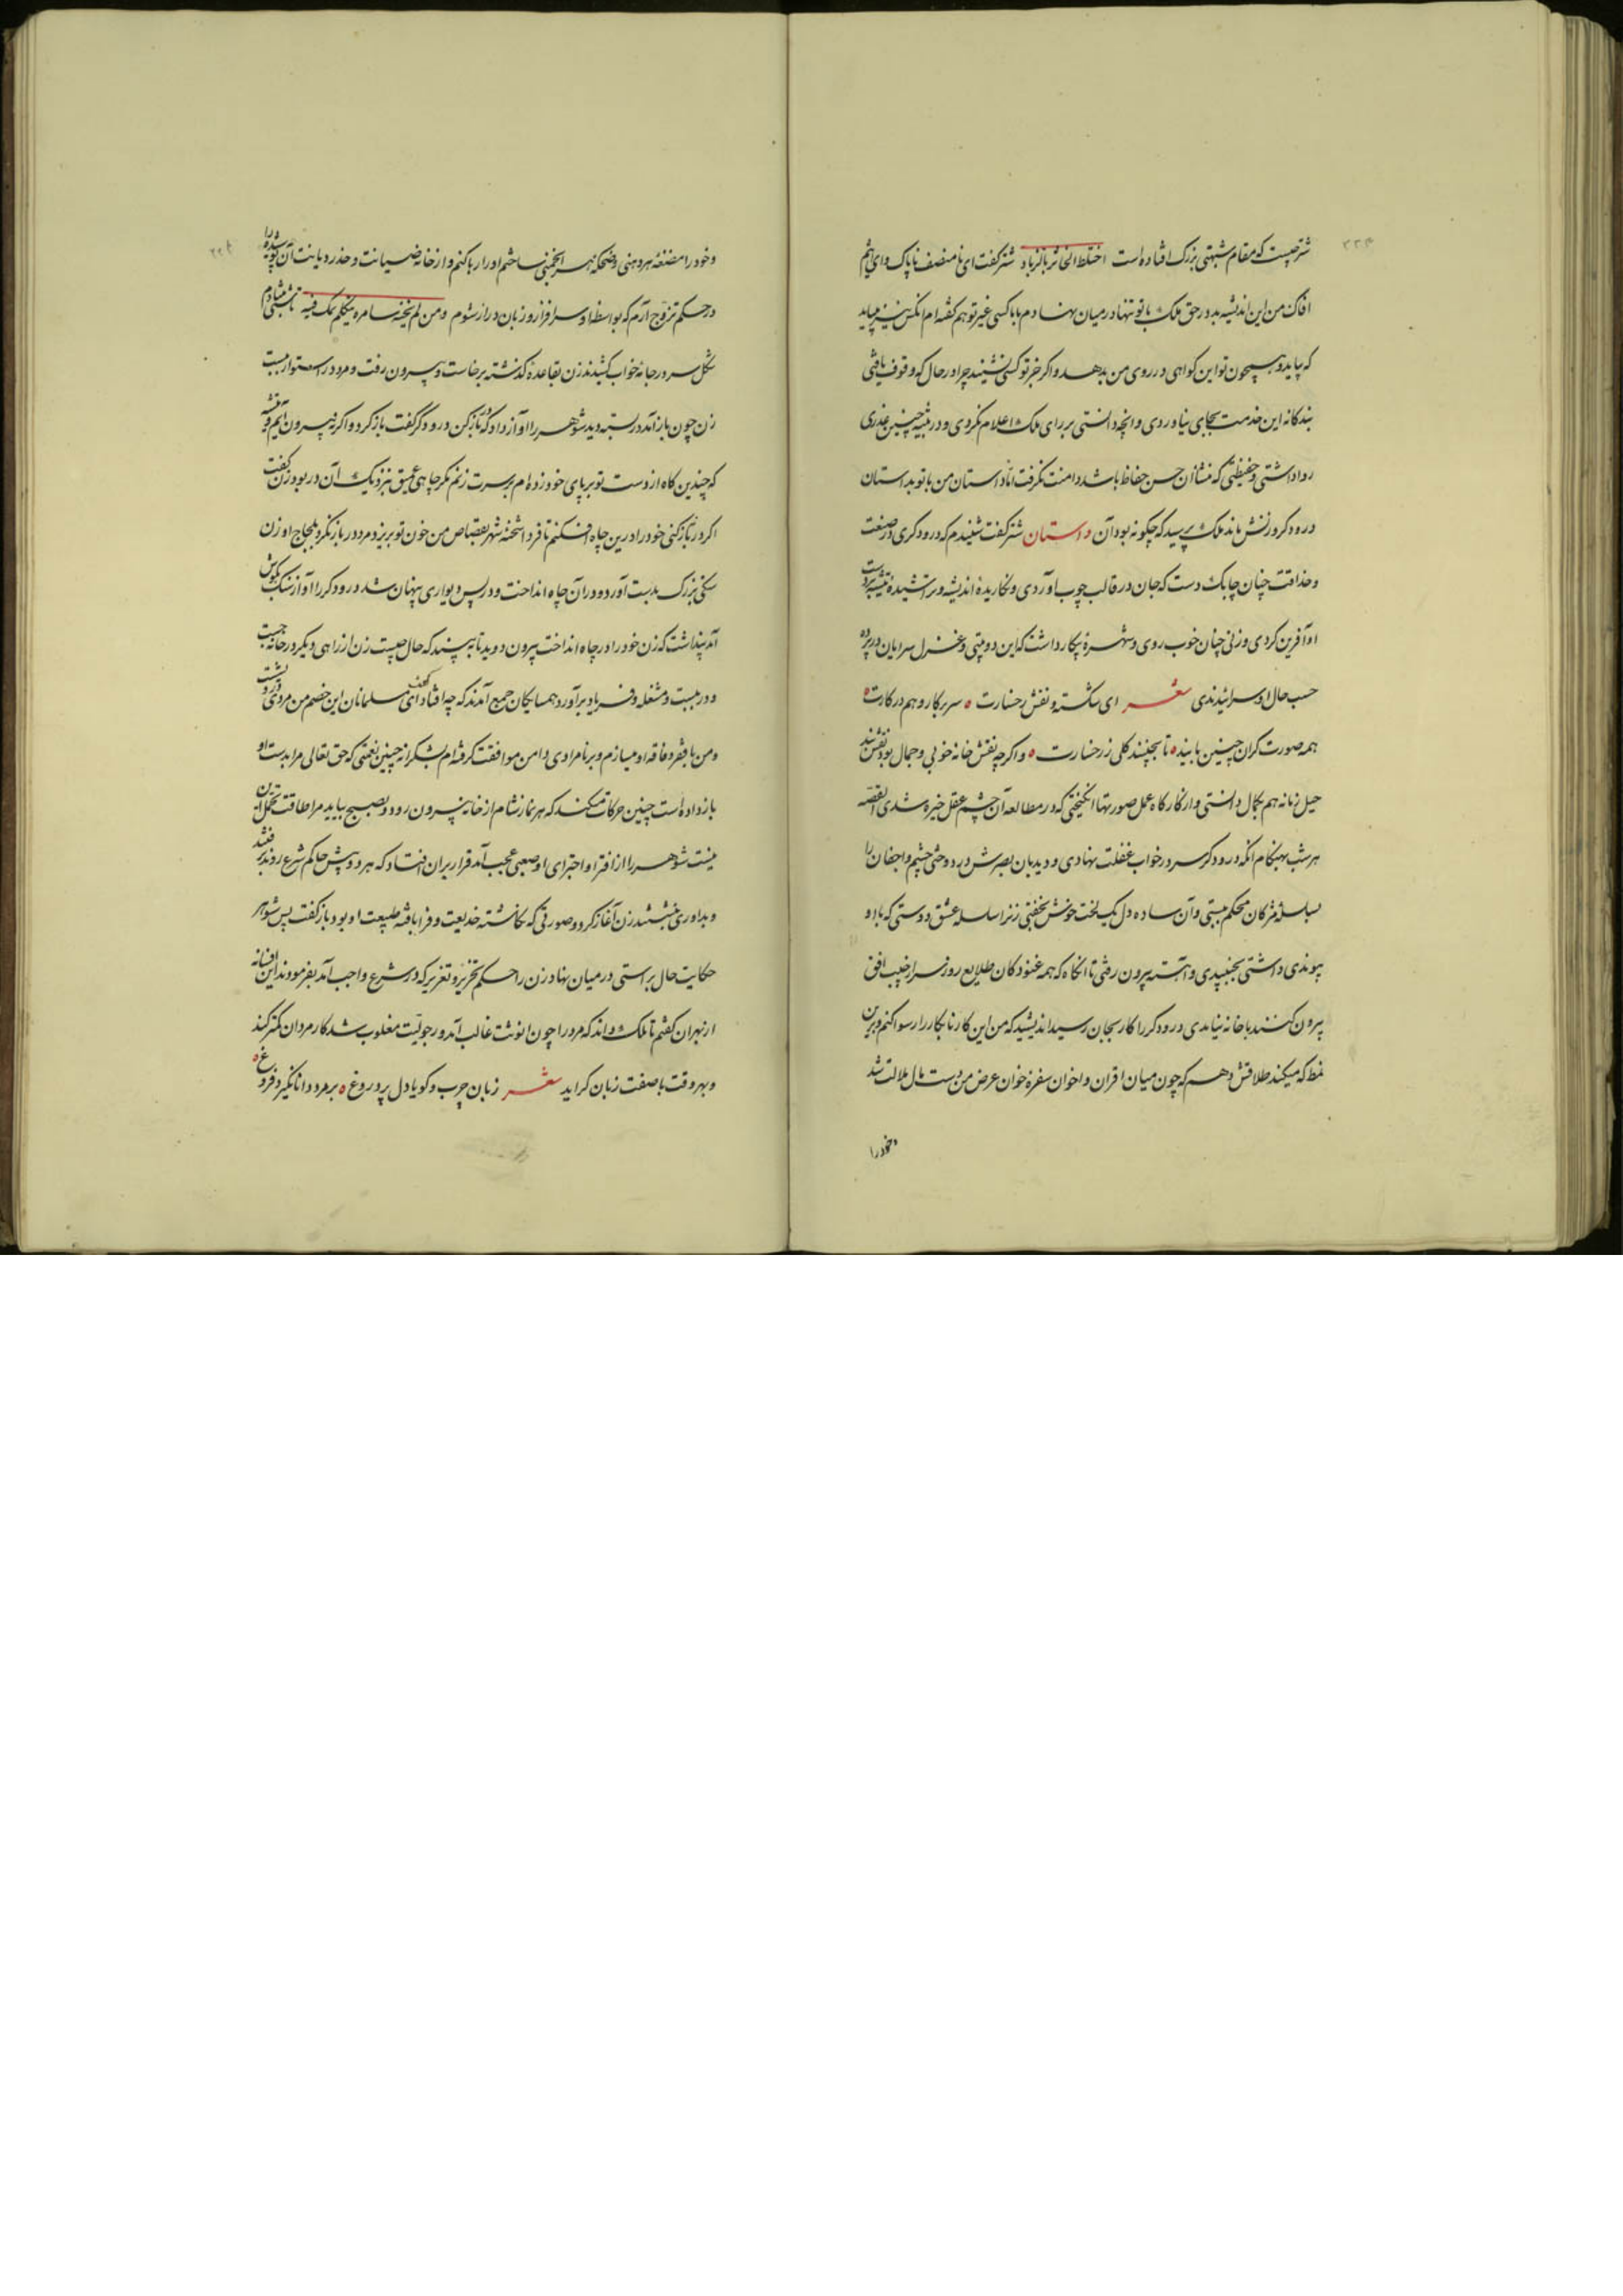 شتر چیست که مقام شبهتی بزرگ افتاده است اختلط الخاثر بالزباد شتر گفت ای نامنصف ناپاک وای اثیم
افاک من این اندیشه بد در حق ملک با تو تنها در میان نهادم یا با کسی غیر تو هم گفته ام انکس نیز میباید
که بیاید و همچون تو این گواهی در روی من بدهد و اگر جز تو کسی نشنید چرا در حال که وقوف یافتی
بندگانه این خدمت بجای نیاوردی و انچه دانستی بر رای ملک اعلام نکردی و در تنبیه چنین غدری
روا داشتی و حفیظتی که منشأ آن حسن حفاظ باشد دامنت نگرفت اما داستان من با تو بداستان
درودگر و زنش ماند ملک پرسید که چگونه بود آن داستان شتر گفت شنیدم که درودگری در صنعت
و حذاقت چنان چابک دست که جان در قالب چوب آوردی و نگاریده اندیشه و تراشیده تیشه بر دست
او آفرین کردی و زنی چنان خوب روی و شهره پیکار داشت که این دو بیتی غزل سرایان در پرده
حسب حال او سرائیدندی شعر ای شکسته نقش رخسارت سر بر کار و هم در کارت
همه صورت گران چین بایند تا بچینند گلی ز رخسارت و اگر چه نقش خانه خوبی و جمال بود نقشبند
حیل زنانه هم بکمال دانستی و از کارگاه عمل صورتها انگیختی که در مطالعه آن چشم عقل خیره شدی القصه
هر شب بهنگام آنکه درودگر سر در خواب غفلت نهادی و دیدبان بصرش در دو حشی چشم و اجفان را
بسلسله مژگان محکم ببستی و آن ساده دل یک لخت خوش بخفتی زن از سلسله عشق و دوستی که با او
پیوندی داشتی بجنبیدی و آهسته بیرون رفتی تا آنگاه که همه غنودگان طلایع روز سر از جیب افق
بیرون کنند باخانه نیامدی درودگر را کار بجان رسید اندیشید که من این کار نابکار را رسوا کنم و برین
نمط که میکند طلاقش دهم که چون میان اقران و اخوان سفره خوان عرض من دست مال ملالت شد
و خود را
و خود را مضغه هر دهنی و ضحکه هر انجمنی ساختم او را رها کنم و از خانه صیانت و خدر دیانت آن پوشیده را
در حکم تزوج آرم که بواسطه او سرافراز و زبان دراز شوم و من لم یخنه سامره یتکلم بملء فیه تا شبی شادم
شکل سر در جامه خواب کشید زن بقاعده گذشته برخاست و بیرون رفت و مرد در استوار ببست
زن چون باز آمد در بسته دید شوهر را آواز داد که در باز کن درودگر گفت باز گرد و اگر نه بیرون آیم و تیشه
که چندین گاه از دست تو بر پای خود زده ام بر سرت زنم مگر چاهی عمیق بنزدیک آن در بود زن گفت
اگر در باز نکنی خود را درین چاه افکنم تا فردا شحنه شهر بقصاص من خون تو بریزد مرد در باز نکرد بلجاج او زن
سنگی بزرگ بدست آورد و در آن چاه انداخت و در پس دیواری پنهان شد درودگر را آواز سنگ بگوش
آمد پنداشت که زن خود را در چاه انداخت بیرون دوید تا ببیند که حال چیست زن از راهی دیگر در خانه جست
و در ببست و مشغله و فریاد برآورد همسایگان جمع آمدند که چه افتاد گفت ای مسلمانان این خصم من مردی درویشست
و من با فقر و فاقه او میسازم و بر نامرادی دامن موافقت گرفته ام بشکرانه چنین نعمتی که حق تعالی مرا بدست او
باز داده است چنین حرکات میکند که هر نماز شام از خانه بیرون رود و بصبح بیاید مرا طاقت تحمل این
نیست شوهر را از افترا و اجترای او صعب عجب آمد قرار بر آن افتاد که هر دو پیش حاکم شرع روند برفتند
و بداوری بنشستند زن آغاز کرد و صورتی که نگاشته خدیعت و فرا بافته طبیعت او بود باز گفت پس شوهر
حکایت حال براستی در میان نهاد زن را حکم تعزیر که در شرع واجب آمد بفرمودند این افسانه
از بهر آن گفتم تا ملک داند که مرد را چون انوثت غالب آمد و رجولیت مغلوب شد کار مردان کمتر کند
و بهر وقت با صفت زنان گراید شعر زبان چرب و گویا دل پر دروغ بر مرد دانا نگیرد فروغ